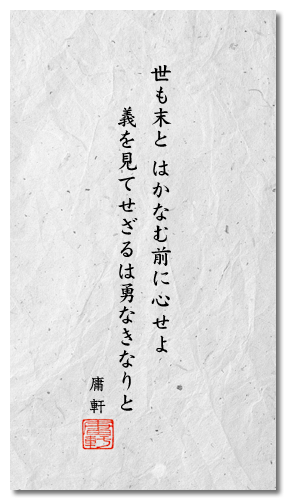 世も末と はかなむ前に心せよ
義を見てせざるは勇なきなりと
庸軒
庸軒